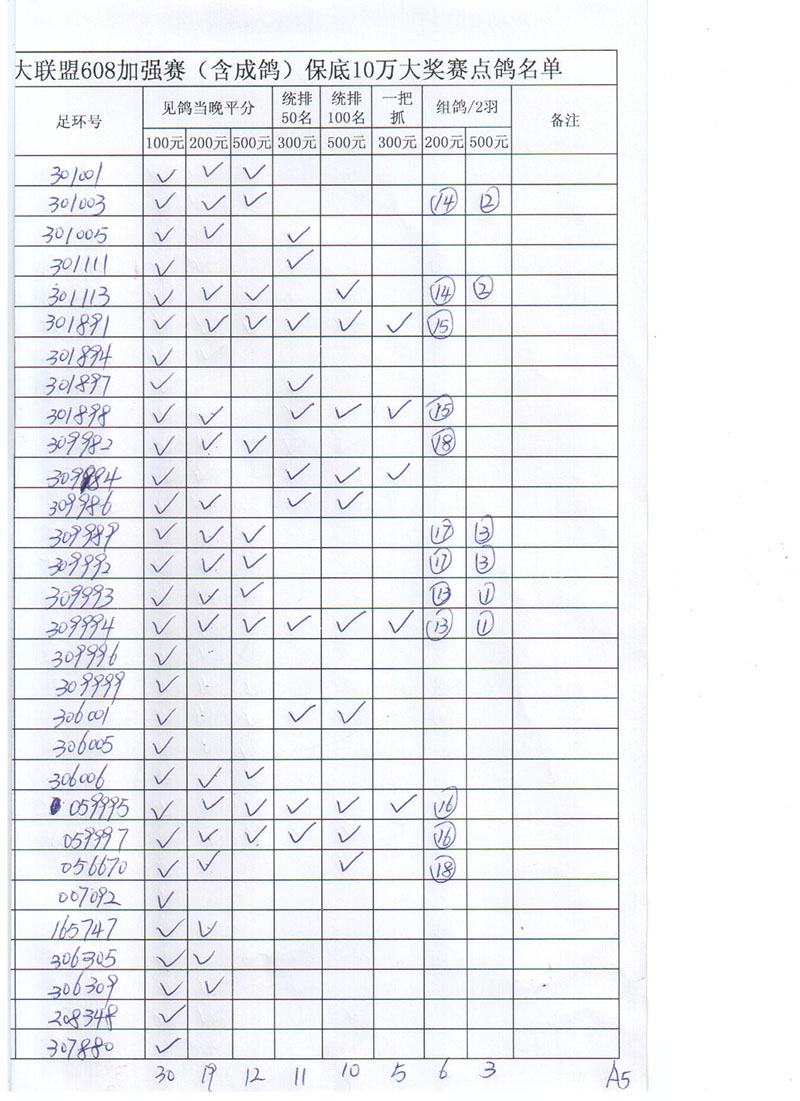 大联盟608加强赛（含成鸽）保底10万大奖赛点鸽名单
足环号 见鸽当晚平分 统排50名 统排100名 一把抓 组鸽/2羽 备注
100元 200元 500元 300元 500元 300元 200元 500元
301001 ✓ ✓ ✓
301003 ✓ ✓ ✓ ⑭ ②
301005 ✓ ✓ ✓
301111 ✓ ✓
301113 ✓ ✓ ✓ ✓ ⑭ ②
301891 ✓ ✓ ✓ ✓ ✓ ✓ ⑮
301894 ✓
301897 ✓ ✓
301898 ✓ ✓ ✓ ✓ ✓ ⑮
309982 ✓ ✓ ✓ ⑱
309984 ✓ ✓ ✓ ✓
309986 ✓ ✓ ✓ ✓
309989 ✓ ✓ ✓ ⑰ ③
309992 ✓ ✓ ✓ ⑰ ③
309993 ✓ ✓ ✓ ⑬ ①
309994 ✓ ✓ ✓ ✓ ✓ ✓ ⑬ ①
309996 ✓
309999 ✓
306001 ✓ ✓ ✓
306005 ✓
306006 ✓ ✓ ✓
059995 ✓ ✓ ✓ ✓ ✓ ✓ ⑯
059997 ✓ ✓ ✓ ✓ ✓ ⑯
056670 ✓ ✓ ✓ ⑱
007092 ✓
165747 ✓ ✓
306305 ✓ ✓
306309 ✓ ✓
208348 ✓
307880 ✓
30 19 12 11 10 5 6 3 A5